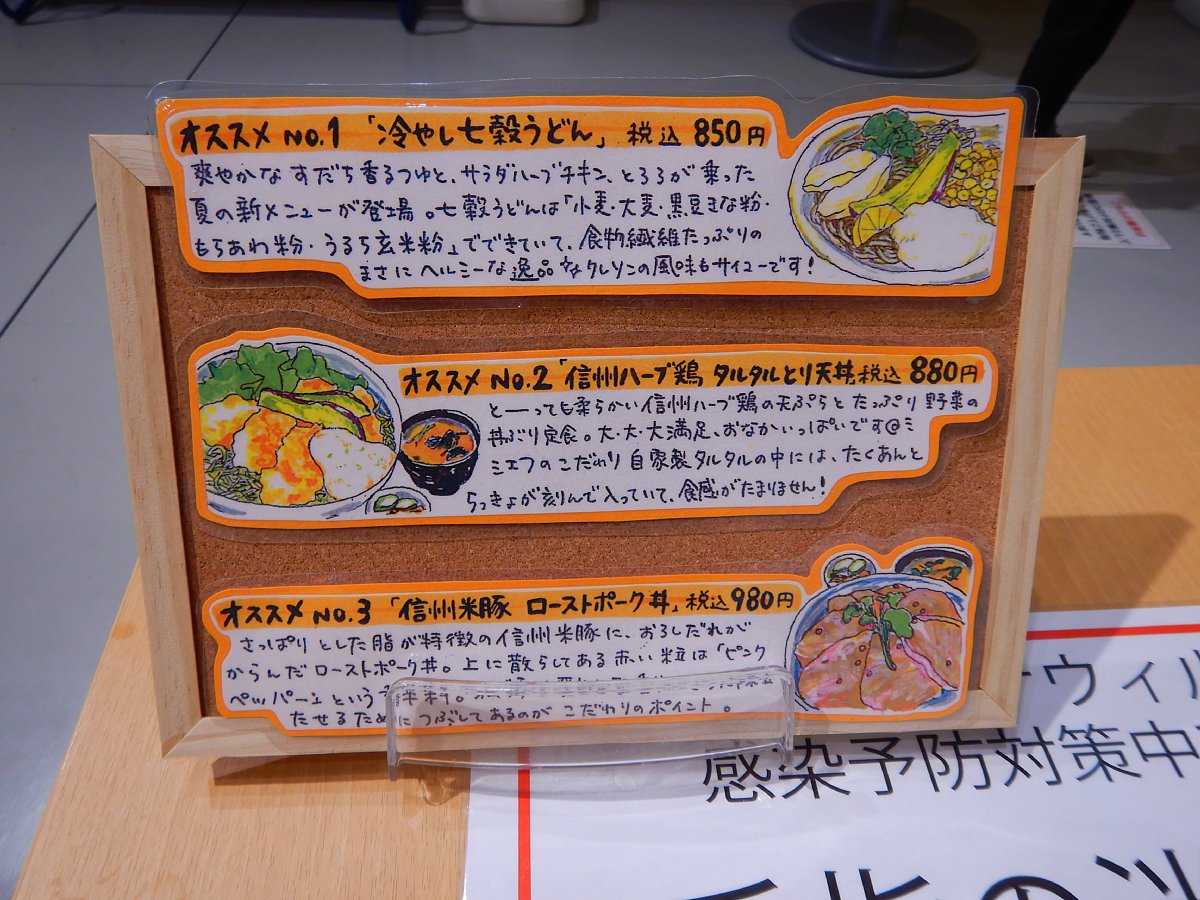 オススメ NO.1 「冷やし七穀うどん」 税込 850円
爽やかな すだち香るつゆと、サラダハーブチキン、とろろが 乗った
夏の新メニューが登場。七穀うどんは「小麦・大麦・黒豆きな粉・
もちあわ粉・うるち玄米粉」でできていて、食物繊維たっぷりの
まさに ヘルシーな逸品 クレソンの風味もサイコーです!
オススメ NO.2 「信州ハーブ鶏 タルタルとり天丼 税込 880円
と―っても柔らかい信州ハーブ鶏の天ぷらと たっぷり野菜の
丼ぶり定食。大・大・大満足、おなかいっぱいです@ミ
ミエフのこだわり 自家製タルタルの中には、たくあんと
らっきょが刻んで入っていて、食感がたまりません!
オススメ NO.3 「信州米豚 ローストポーク丼」税込980円
さっぱり とした脂が特徴の信州米豚に、おろしだれが
からんだ ローストポーク丼。上に散らしてある赤い粒は「ピンク
ペッパー」という
たせるために つぶしてあるのが こだわりのポイント。
ウィル
感染予防対策中